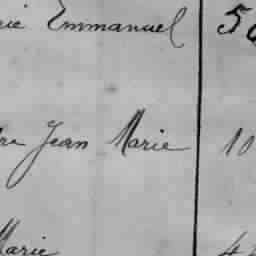 Emmanuel 50
Jean Marie 10
Marie 4